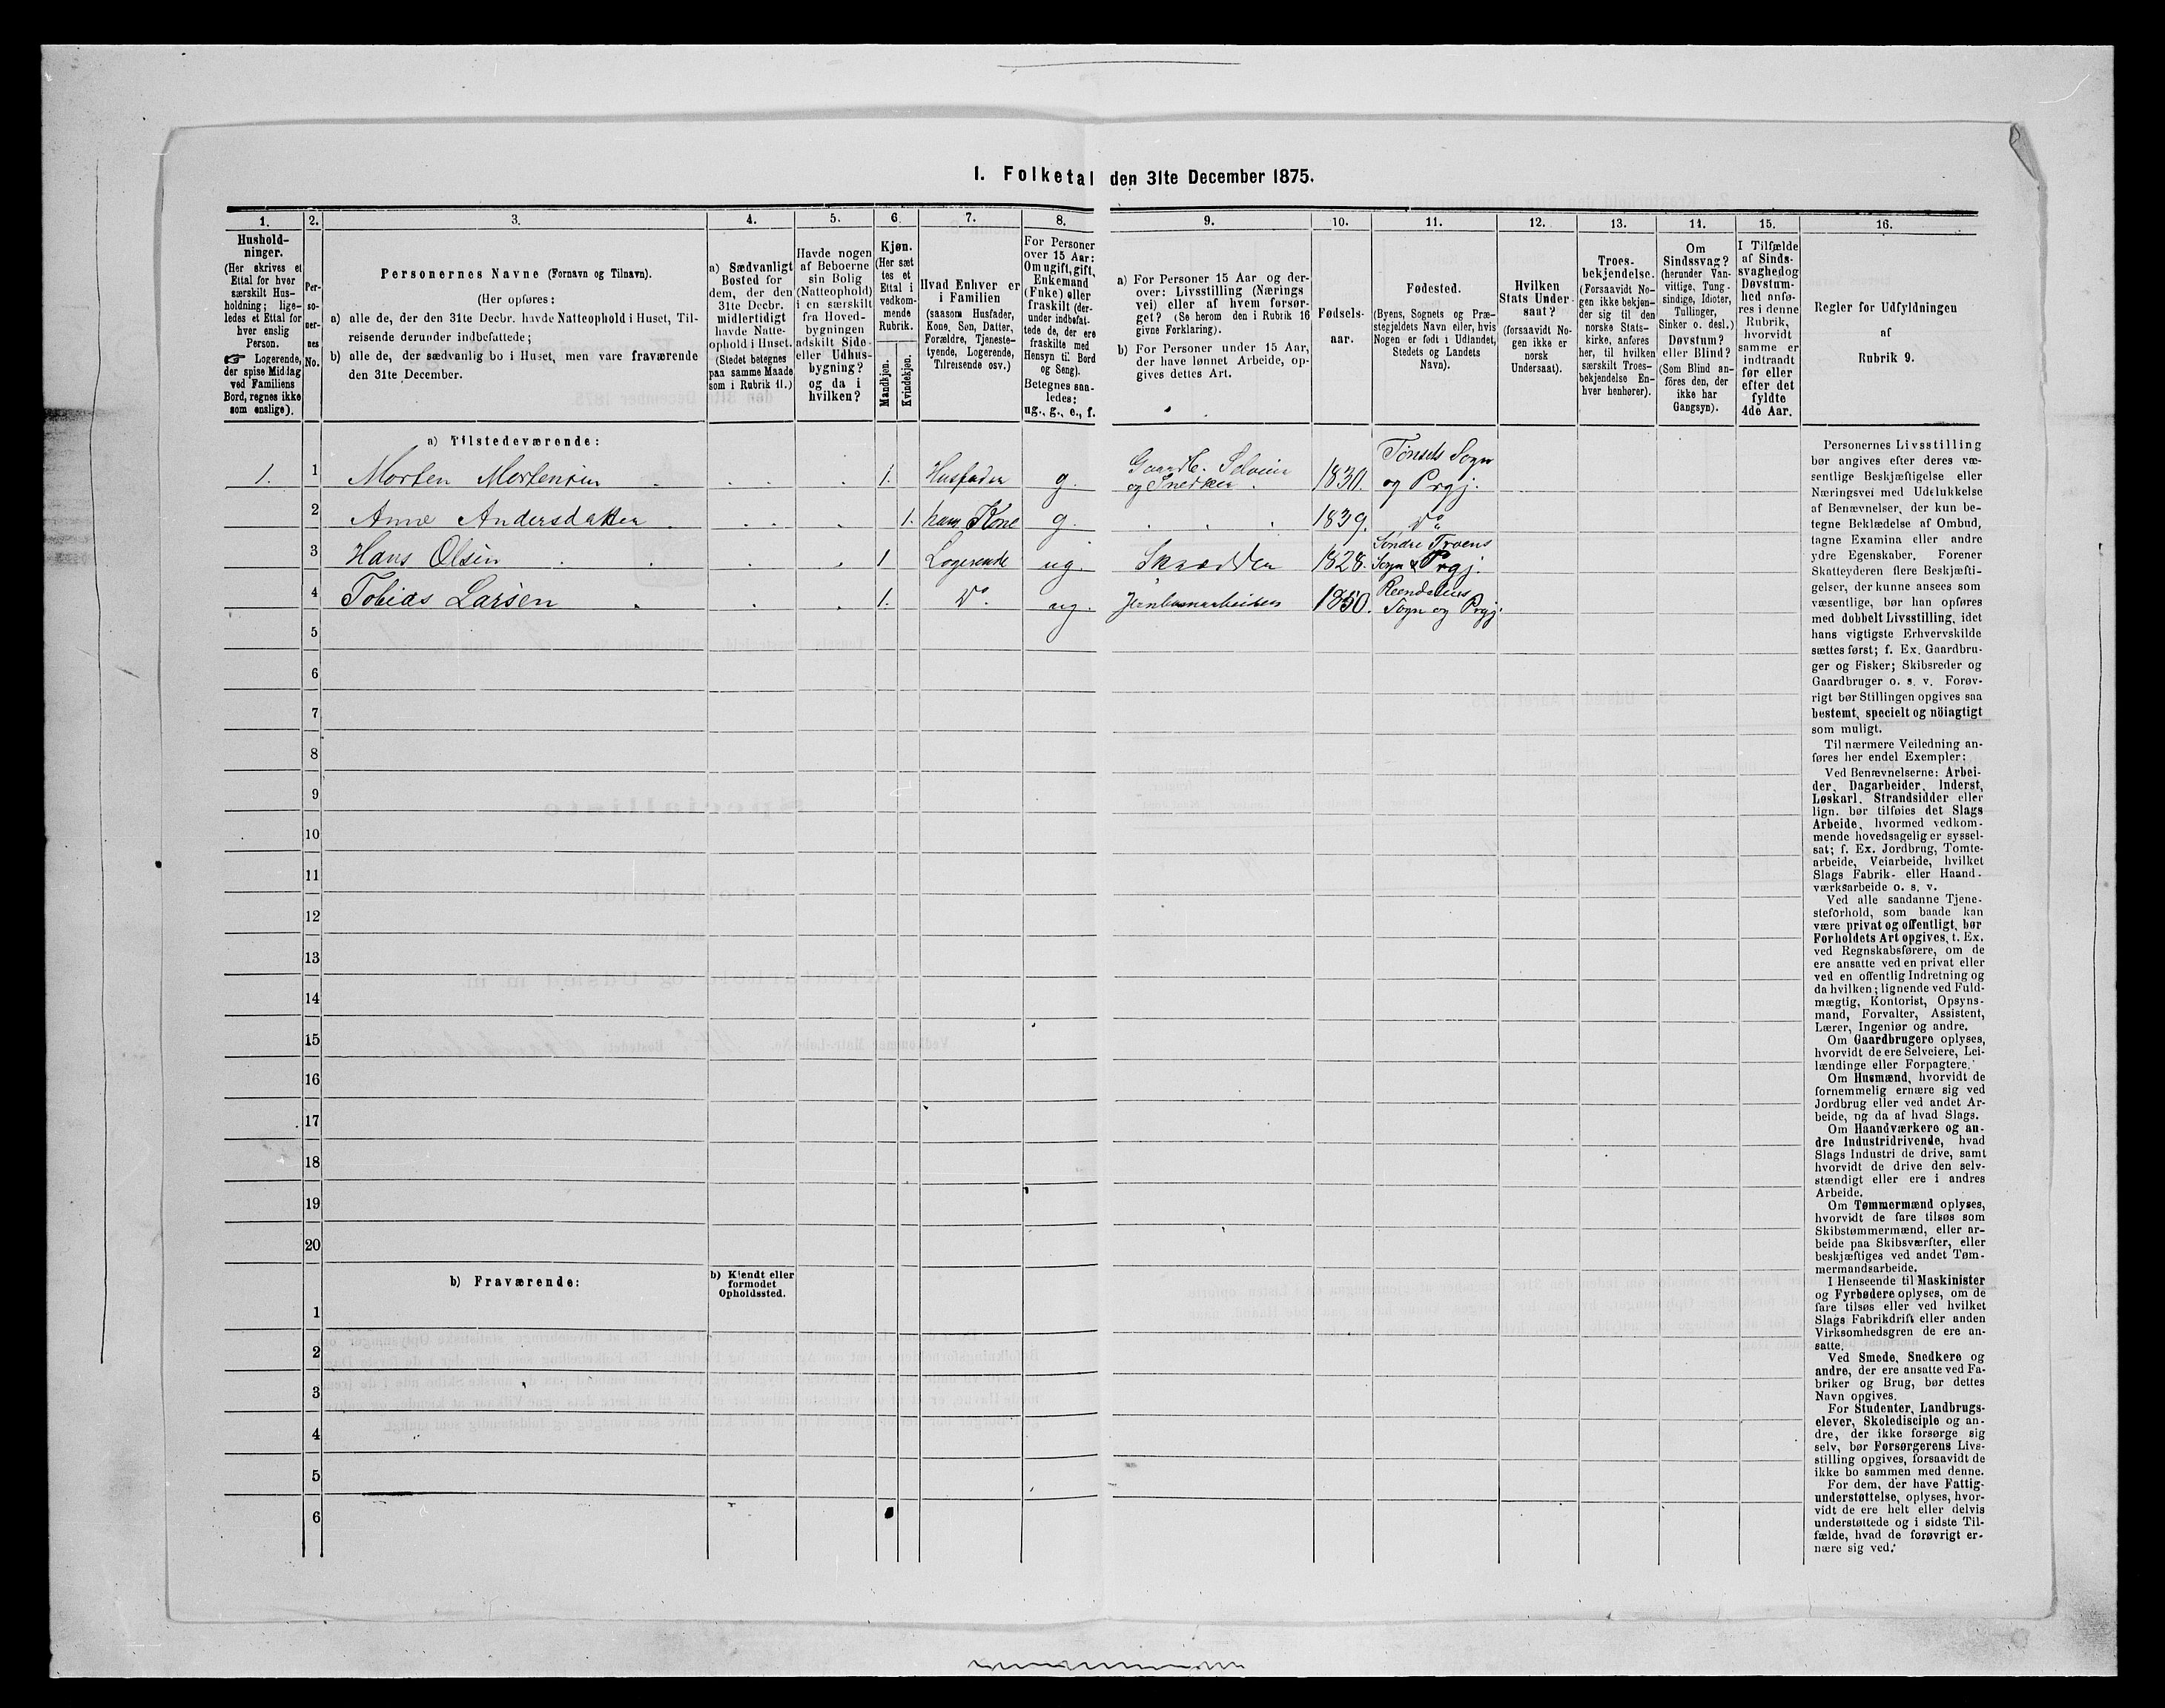 I. Folketal den 31te December 1875.
1.
2.
3.
4.
5.
6.
7.
8.
9.
10.
11.
12.
13.
14.
15.
16.
Hushold-
ninger.
(Her skrives et
Ettal for hver
særskilt Hus-
holdning; lige-
ledes et Ettal for
hver enslig
Person.
☞ Logerende,
der spise Middag
ved Familiens
Bord, regnes ikke
som enslige).
Per-
so-
ner-
nes
No.
Personernes Navne (Fornavn og Tilnavn).
(Her opføres:
a) alle de, der den 31te Decbr. havde Natteophold i Huset, Til-
reisende derunder indbefattede;
b) alle de, der sædvanlig bo i Huset, men vare fraværende
den 31te December.
a) Sædvanligt
Bosted for
dem, der den
31te Decbr.
midlertidigt
havde Natte-
ophold i Huset.
(Stedet betegnes
paa samme Maade
som i Rubrik 11.)
Havde nogen
af Beboerne
sin Bolig
(Natteophold)
i en særskilt
fra Hoved-
bygningen
adskilt Side-
eller Udhus-
bygning?
og da i
hvilken?
Kjøn.
(Her sæt
tes et
Ettal i
vedkom-
mende
Rubrik.
Mandkjøn.
Kvindekjøn.
Hvad Enhver er
i Familien
(saasom Husfader,
Kone, Søn, Datter,
Forældre, Tjeneste-
tyende, Logerende,
Tilreisende osv.)
For Personer
over 15 Aar:
Om ugift, gift,
Enkemand
(Enke) eller
fraskilt (der-
under indbefat-
tede de, der ere
fraskilte med
Hensyn til Bord
og Seng).
Betegnes saa-
ledes:
ug., g., e., f.
a) For Personer 15 Aar og der-
over: Livsstilling (Nærings
vei) eller af hvem forsør-
get? (Se herom den i Rubrik 16
givne Forklaring).
b) For Personer under 15 Aar,
der have lønnet Arbeide, op-
gives dettes Art.
Fødsels-
aar.
Fødested.
(Byens, Sognets og Præ-
stegjeldets Navn eller, hvis
Nogen er født i Udlandet,
Stedets og Landets
Navn).
Hvilken
Stats Under-
saat?
(forsaavidt No-
gen ikke er
norsk
Undersaat).
Troes-
bekjendelse.
(Forsaavidt No-
gen ikke bekjen-
der sig til den
norske Stats-
kirke, anføres
her, til hvilken
særskilt Troes-
bekjendelse En-
hver henhører).
Om
Sindssvag?
(herunder Van-
vittige, Tung-
sindige, Idioter,
Tullinger,
Sinker o. desl.)
Døvstum?
eller Blind?
(Som Blind an-
føres den, der
ikke har
Gangsyn).
I Tilfælde
af Sinds-
svaghed og
Døvstum-
hed anfø-
res i denne
Rubrik,
hvorvidt
samme er
indtraadt
før eller
efter det
fyldte
4de Aar.
Regler for Udfyldningen
af
Rubrik 9.
a) Tilstedeværende:
1. 1 Morten Mortensen 1. Husfader g. Gaardb. Selveier og Snedker. 1830. Tønsets Sogn og Prgj.
2 Anne Andersdatter 1. hans Kone g. 1839. Do
3 Hans Olsen 1 Logerende ug. Skrædder 1828. Søndre Troens Sogn & Prgj.
4 Tobias Larsen 1. Do. ug. Jernbanearbeider 1850. Reendalens Sogn og Prgj.
5
6
7
8
9
10
11
12
13
14
15
16
17
18
19
20
b) Fraværende:
b) Kjendt eller
formodet
Opholdssted.
1
2
3
4
5
6
Personernes Livsstilling
bør angives efter deres væ-
sentlige Beskjæftigelse eller
Næringsvei med Udelukkelse
af Benævnelser, der kun be-
tegne Beklædelse af Ombud,
tagne Examina eller andre
ydre Egenskaber. Forener
Skatteyderen flere Beskjæfti-
gelser, der kunne ansees som
væsentlige, bør han opføres
med dobbelt Livsstilling, idet
hans vigtigste Erhvervskilde
sættes først; f. Ex. Gaardbru-
ger og Fisker; Skibsreder og
Gaardbruger o. s. v. Forøv-
rigt bør Stillingen opgives saa
bestemt, specielt og nöiagtigt
som muligt.
Til nærmere Veiledning an-
føres her endel Exempler:
Ved Benævnelserne: Arbei-
der, Dagarbeider, Inderst,
Løskarl, Strandsidder eller
lign. bør tilføies det Slags
Arbeide, hvormed vedkom-
mende hovedsagelig er syssel-
sat; f. Ex. Jordbrug, Tomte-
arbeide, Veiarbeide, hvilket
Slags Fabrik- eller Haand-
værksarbeide o. s. v.
Ved alle saadanne Tjene-
steforhold, som baade kan
være privat og offentligt, bør
Forholdets Art opgives, t. Ex.
ved Regnskabsførere, om de
ere ansatte ved en privat eller
ved en offentlig Indretning og
da hvilken; lignende ved Fuld-
mægtig, Kontorist, Opsyns-
mand, Forvalter, Assistent,
Lærer, Ingeniør og andre.
Om Gaardbrugere oplyses,
hvorvidt de ere Selveiere, Lei-
lændinge eller Forpagtere.
Om Husmænd, hvorvidt de
fornemmelig ernære sig ved
Jordbrug eller ved andet Ar-
beide, og da af hvad Slags.
Om Haandværkere og an-
dre Industridrivende, hvad
Slags Industri de drive, samt
hvorvidt de drive den selv-
stændigt eller ere i andres
Arbeide.
Om Tømmermænd oplyses,
hvorvidt de fare tilsøs som
Skibstømmermænd, eller ar-
beide paa Skibsværfter, eller
beskjæftiges ved andet Tøm-
mermandsarbeide.
I Henseende til Maskinister
og Fyrbødere oplyses, om de
fare tilsøs eller ved hvilket
Slags Fabrikdrift eller anden
Virksomhedsgren de ere an-
satte.
Ved Smede, Snedkere og
andre, der ere ansatte ved Fa-
briker og Brug, bør dettes
Navn opgives.
For Studenter, Landbrugs-
elever, Skoledisciple og an-
dre, der ikke forsørge sig
selv, bør Forsørgerens Livs-
stilling opgives, forsaavidt de
ikke bo sammen med denne.
For dem, der have Fattig-
understøttelse, oplyses, hvor-
vidt de ere helt eller delvis
understøttede og i sidste Til-
fælde, hvad de forøvrigt er-
nære sig ved.